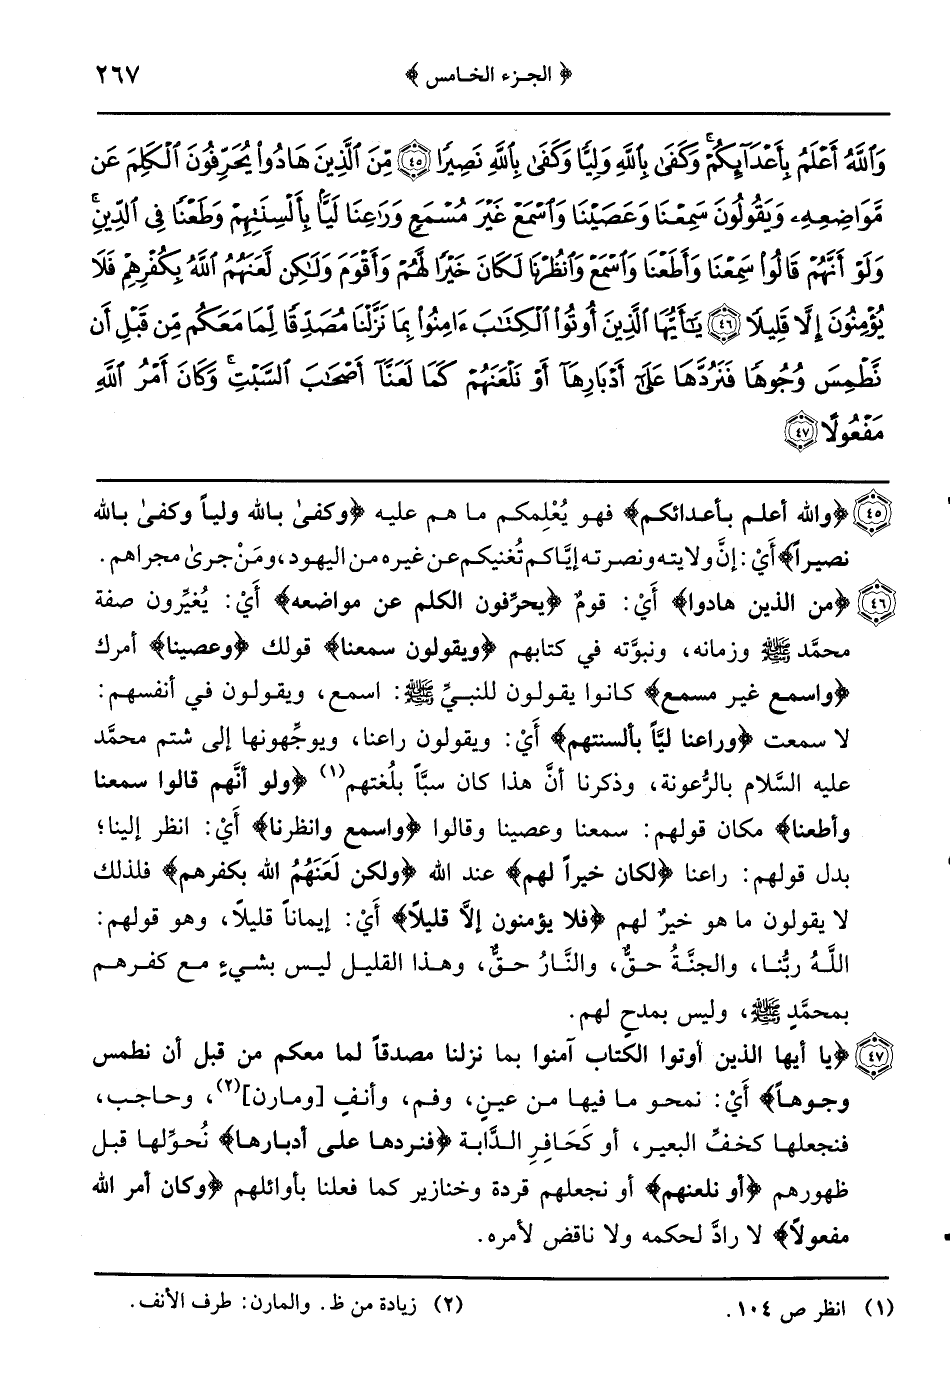 ﴿ الجزء الخامس ﴾ ٢٦٧
وَٱللَّهُ أَعْلَمُ بِأَعْدَآئِكُمْ ۚ وَكَفَىٰ بِٱللَّهِ وَلِيًّا وَكَفَىٰ بِٱللَّهِ نَصِيرًا ٤٥ مِّنَ ٱلَّذِينَ هَادُوا۟ يُحَرِّفُونَ ٱلْكَلِمَ عَن
مَّوَاضِعِهِۦ وَيَقُولُونَ سَمِعْنَا وَعَصَيْنَا وَٱسْمَعْ غَيْرَ مُسْمَعٍ وَرَٰعِنَا لَيًّۢا بِأَلْسِنَتِهِمْ وَطَعْنًا فِى ٱلدِّينِ ۚ
وَلَوْ أَنَّهُمْ قَالُوا۟ سَمِعْنَا وَأَطَعْنَا وَٱسْمَعْ وَٱنظُرْنَا لَكَانَ خَيْرًا لَّهُمْ وَأَقْوَمَ وَلَٰكِن لَّعَنَهُمُ ٱللَّهُ بِكُفْرِهِمْ فَلَا
يُؤْمِنُونَ إِلَّا قَلِيلًا ٤٦ يَٰٓأَيُّهَا ٱلَّذِينَ أُوتُوا۟ ٱلْكِتَٰبَ ءَامِنُوا۟ بِمَا نَزَّلْنَا مُصَدِّقًا لِّمَا مَعَكُم مِّن قَبْلِ أَن
نَّطْمِسَ وُجُوهًا فَنَرُدَّهَا عَلَىٰٓ أَدْبَارِهَآ أَوْ نَلْعَنَهُمْ كَمَا لَعَنَّآ أَصْحَٰبَ ٱلسَّبْتِ ۚ وَكَانَ أَمْرُ ٱللَّهِ
مَفْعُولًا ٤٧
٤٥ ﴿والله أعلم بأعدائكم﴾ فهو يُعْلِمكم ما هم عليه ﴿وكفىٰ بالله ولياً وكفىٰ بالله
نصيراً﴾ أَيْ: إنَّ ولايته ونصرته إيَّاكم تُغنيكم عن غيره من اليهود، ومَنْ جرىٰ مجراهم.
٤٦ ﴿من الذين هادوا﴾ أَيْ: قومٌ ﴿يحرِّفون الكلم عن مواضعه﴾ أَيْ: يُغيِّرون صفة
محمَّد ﷺ وزمانه، ونبوَّته في كتابهم ﴿ويقولون سمعنا﴾ قولك ﴿وعصينا﴾ أمرك
﴿واسمع غير مسمع﴾ كانوا يقولون للنبيِّ ﷺ: اسمع، ويقولون في أنفسهم:
لا سمعت ﴿وراعنا ليَّاً بألسنتهم﴾ أَيْ: ويقولون راعنا، ويوجِّهونها إلى شتم محمَّد
عليه السَّلام بالرُّعونة، وذكرنا أنَّ هذا كان سبَّاً بلُغتهم(١) ﴿ولو أنَّهم قالوا سمعنا
وأطعنا﴾ مكان قولهم: سمعنا وعصينا وقالوا ﴿واسمع وانظرنا﴾ أَيْ: انظر إلينا؛
بدل قولهم: راعنا ﴿لكان خيراً لهم﴾ عند الله ﴿ولكن لَعَنَهُمُ الله بكفرهم﴾ فلذلك
لا يقولون ما هو خيرٌ لهم ﴿فلا يؤمنون إلاَّ قليلاً﴾ أَيْ: إيماناً قليلاً، وهو قولهم:
اللَّهُ ربُّنا، والجنَّةُ حقٌّ، والنَّارُ حقٌّ، وهذا القليل ليس بشيءٍ مع كفرهم
بمحمَّدٍ ﷺ، وليس بمدحٍ لهم.
٤٧ ﴿يا أيها الذين أوتوا الكتاب آمنوا بما نزلنا مصدقاً لما معكم من قبل أن نطمس
وجوهاً﴾ أَيْ: نمحو ما فيها من عينٍ، وفم، وأنفٍ [ومارن](٢)، وحاجب،
فنجعلها كخفِّ البعير، أو كَحَافِرِ الدَّابة ﴿فنردها على أدبارها﴾ نُحوِّلها قبل
ظهورهم ﴿أو نلعنهم﴾ أو نجعلهم قردة وخنازير كما فعلنا بأوائلهم ﴿وكان أمر الله
مفعولاً﴾ لا رادَّ لحكمه ولا ناقض لأمره.
(١) انظر ص ١٠٤. (٢) زيادة من ظ. والمارن: طرف الأنف.